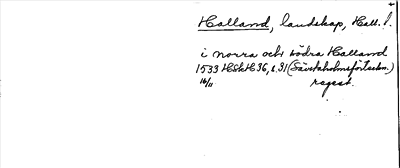 Halland, landskap, Hall. l.
i norra och södra Halland
1533 HSH 36, s. 31 (Sävstaholmsförteckn.)
16/11 regest.